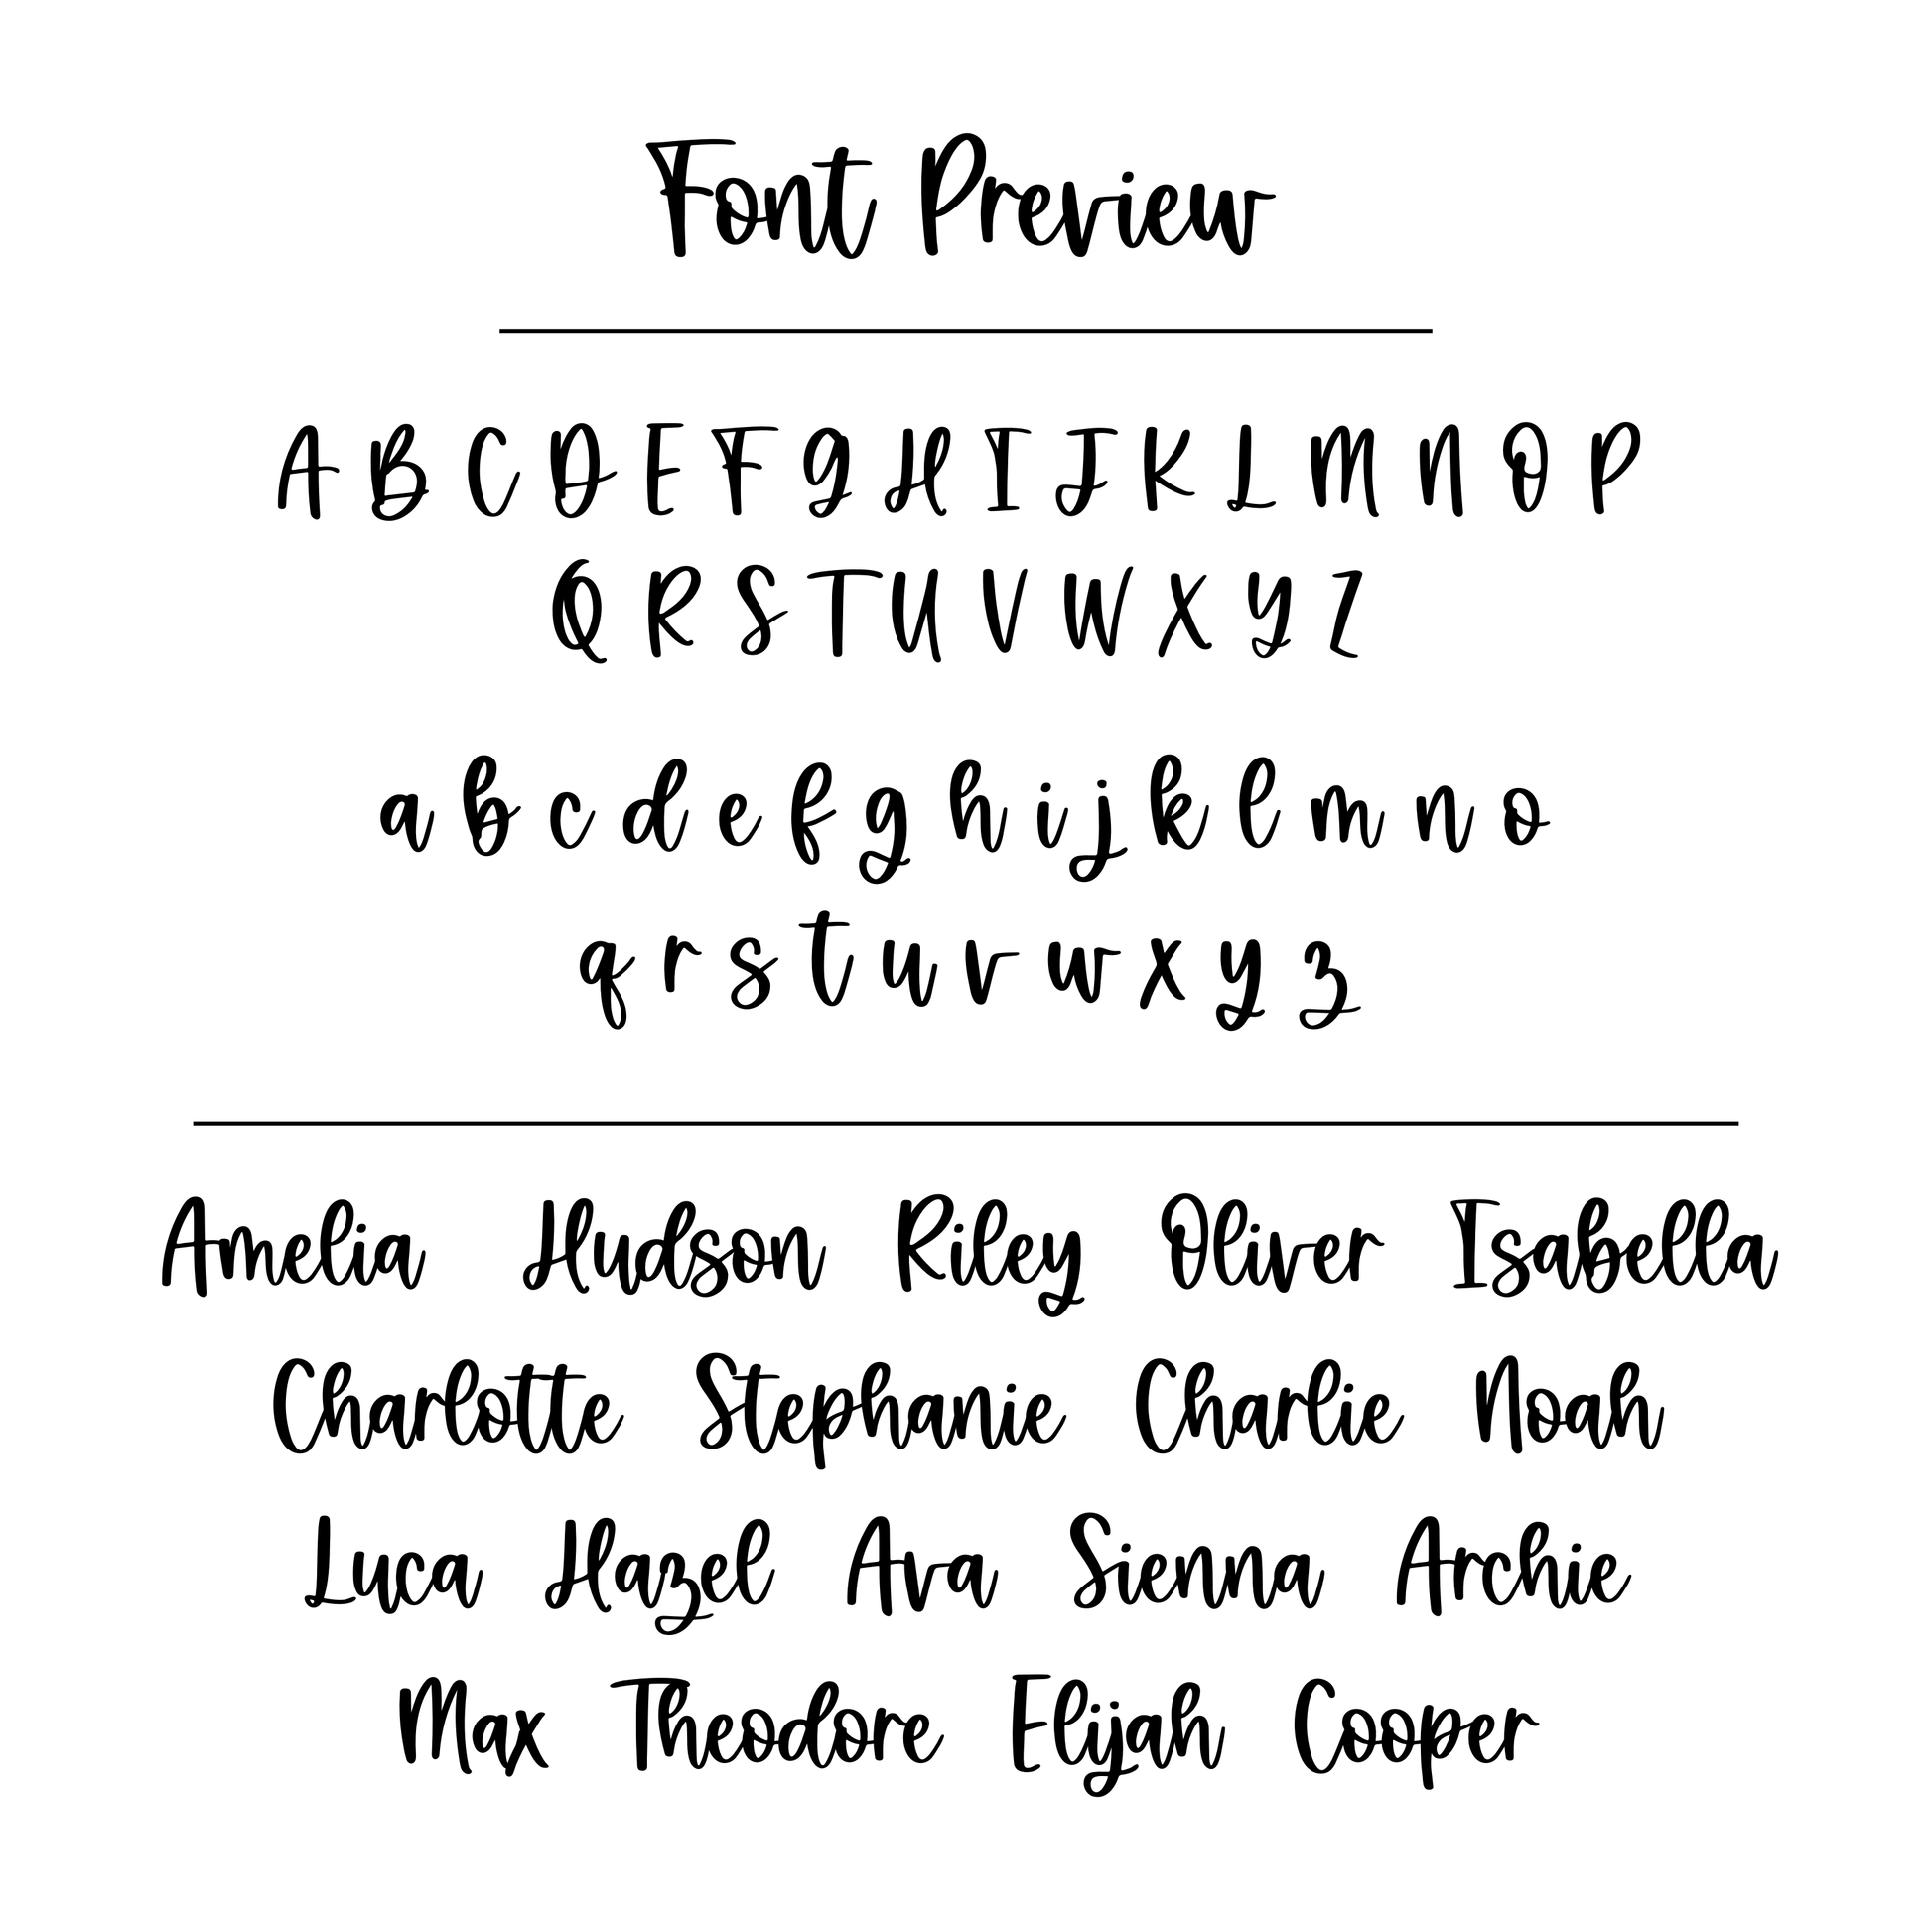 Font Preview
A B C D E F G H I J K L M N O P
Q R S T U V W X Y Z
a b c d e f g h i j k l m n o
q r s t u v w x y z
Amelia Hudson Riley Oliver Isabella
Charlotte Stephanie Charlie Noah
Luca Hazel Ava Sienna Archie
Max Theodore Elijah Cooper